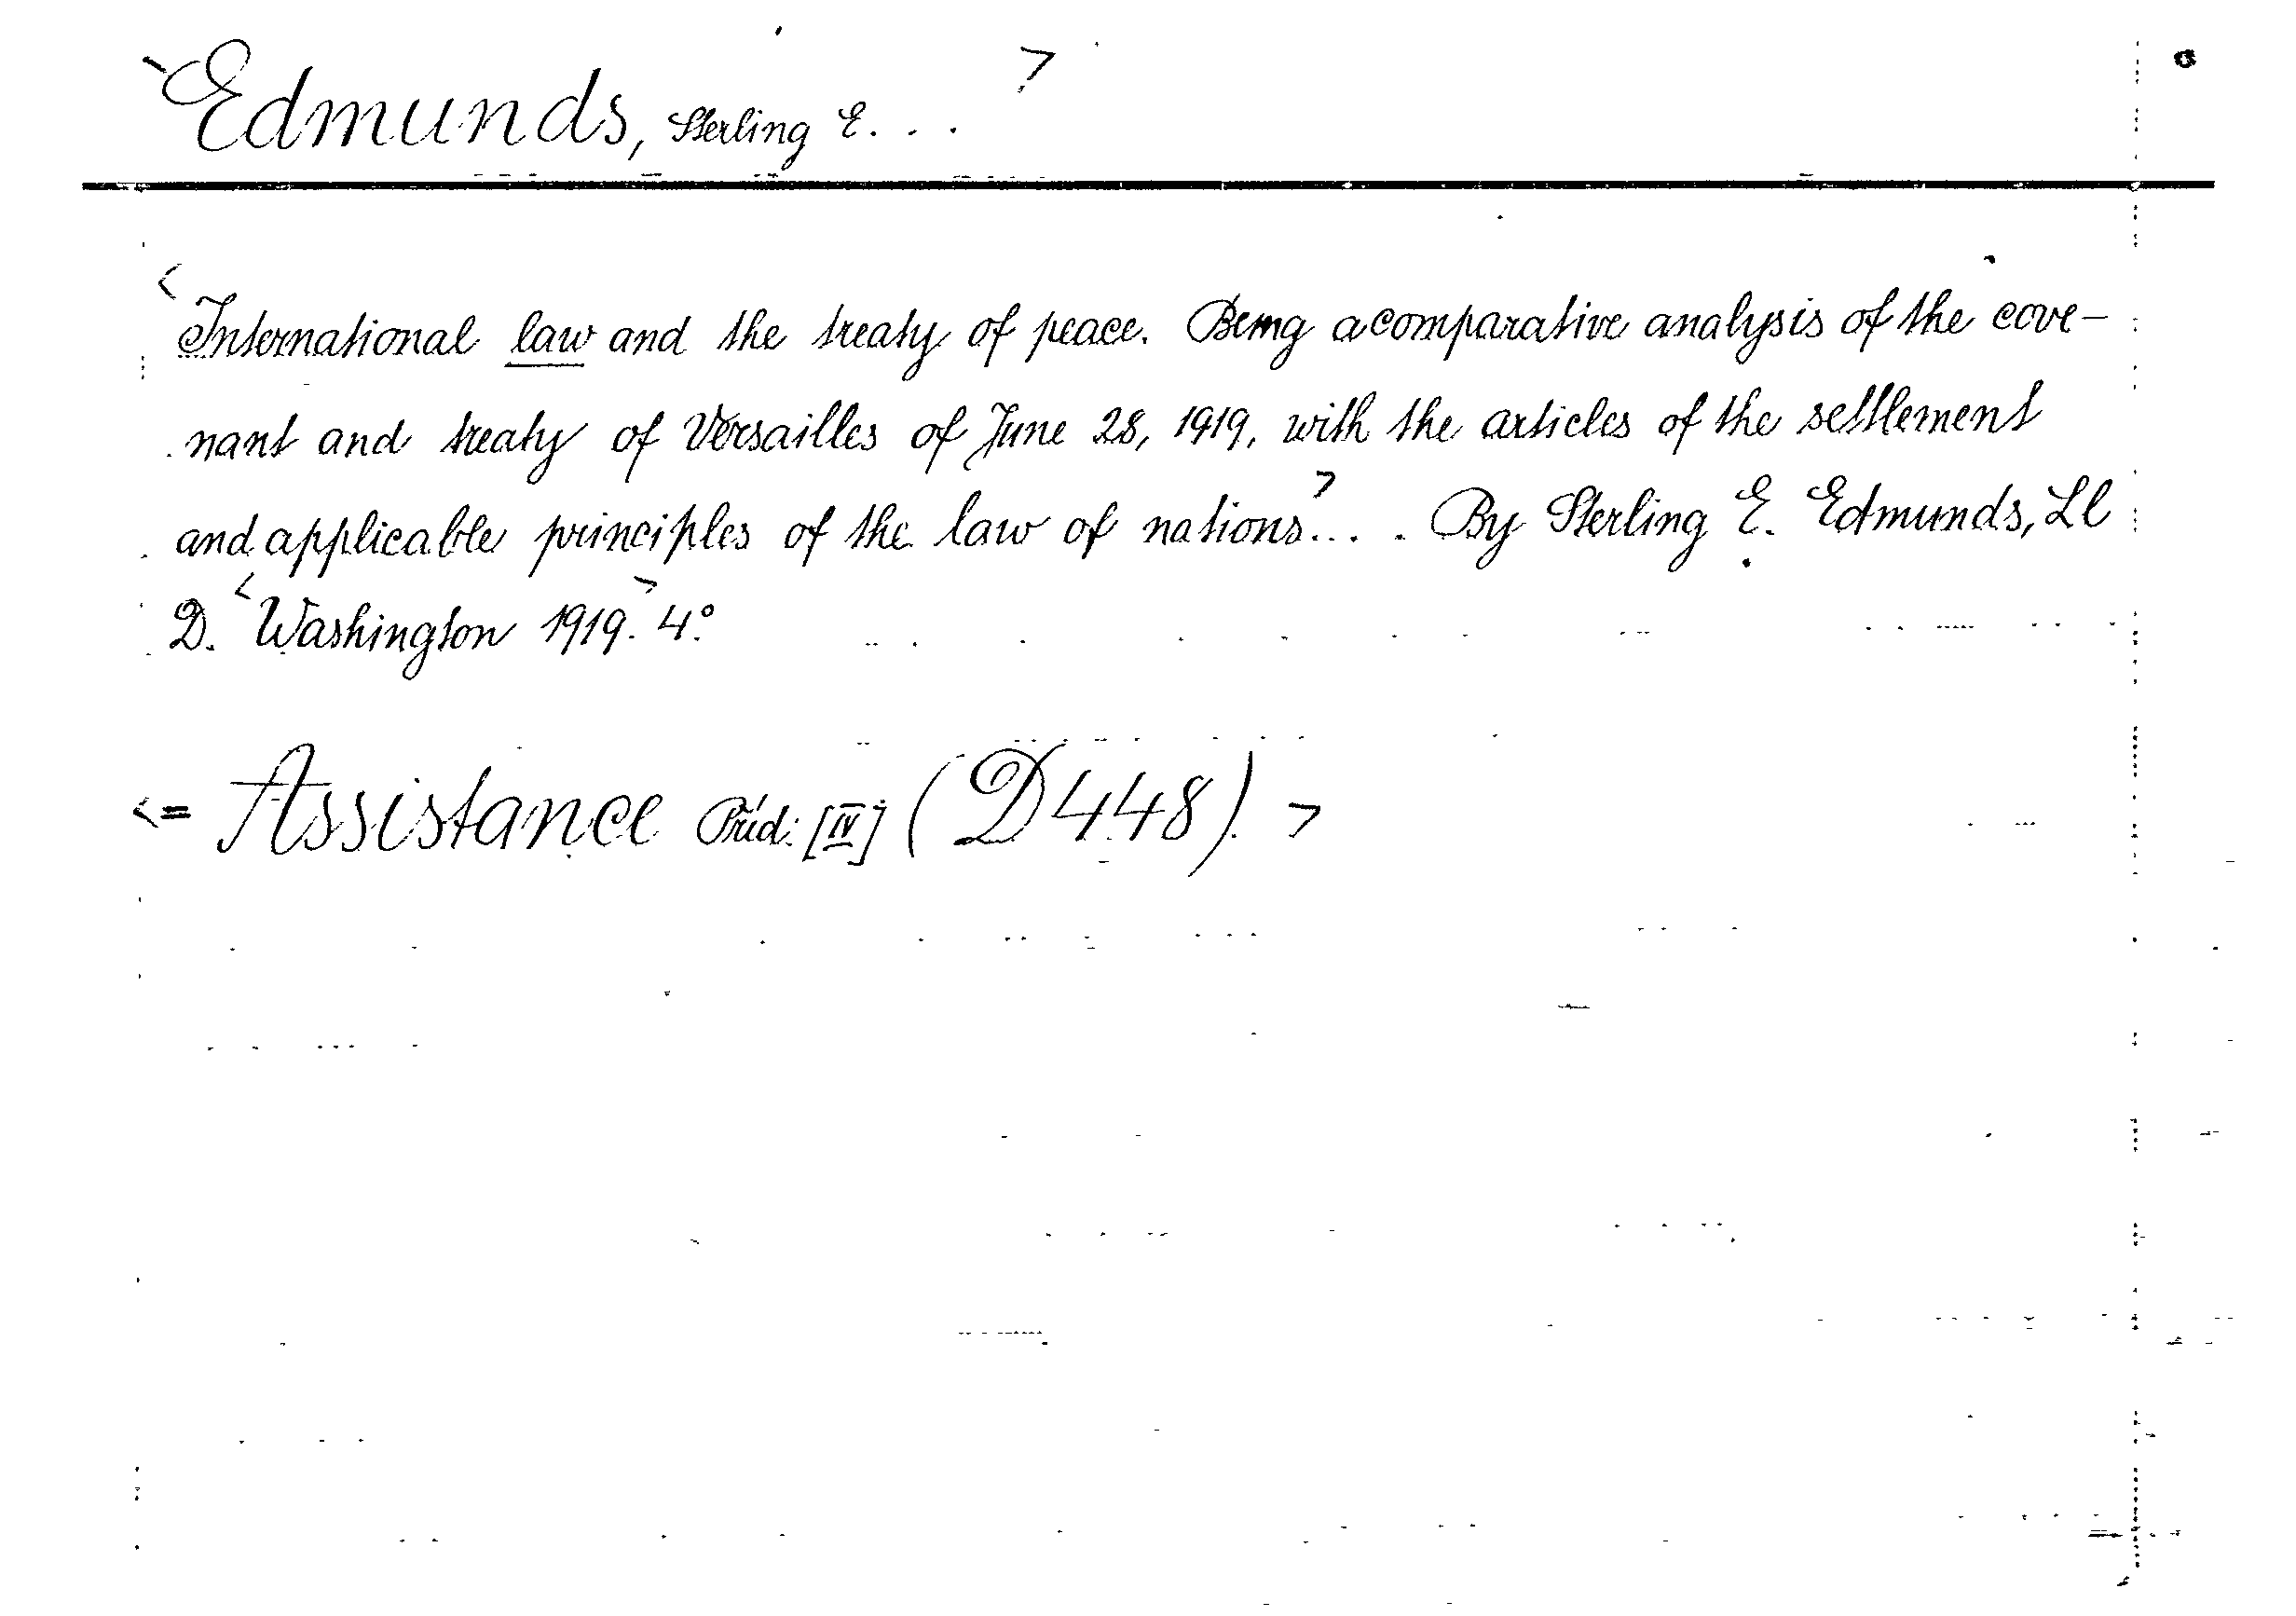 <Edmunds, Sterling E. . . >
<International law and the treaty of peace. Being a comparative analysis of the cove-
nant and treaty of Versailles of June 28, 1919, with the articles of the settlement
and applicable principles of the law of nations>... . By Sterling E. Edmunds, LL
D. <Washington 1919.> 4°
<= Assistance Príd: [IV] (D448). >